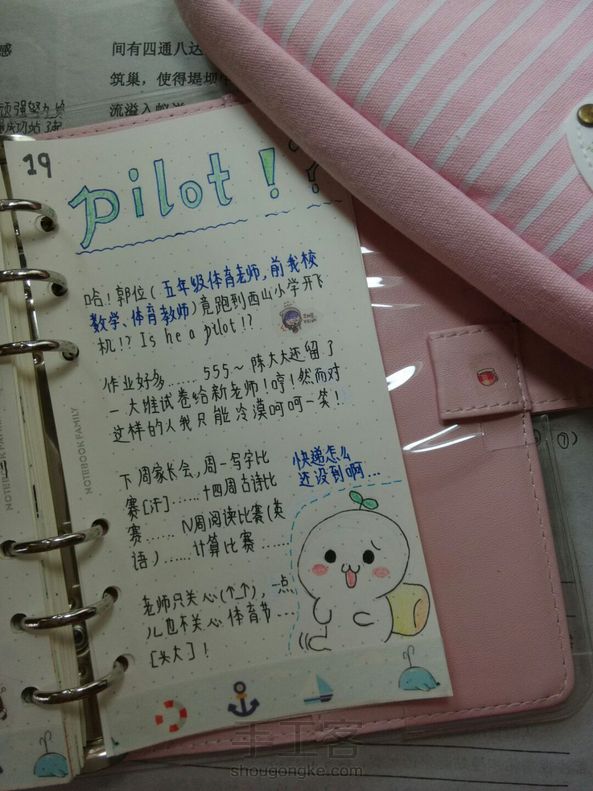 间有四通八达
筑巢，使得堤坝
流溢入
19
pilot!?
哈！郭位（五年级体育老师，前我校
数学、体育教师）竟跑到西山小学开飞
机!? Is he a pilot!?
作业好多…… 555~ 陈大大还留了
一大堆试卷给新老师！哼！然而对
这样的人我只能冷漠呵呵一笑！
下周家长会，周一写字比
赛[汗]……十四周古诗比
赛……N周阅读比赛(英
语)……计算比赛……
快递怎么
还没到啊…
老师只关心(↑_↑)，一点
儿也不关心体育节…
[头大]！
NOTEBOOK FAMILY
手工客
shougongke.com